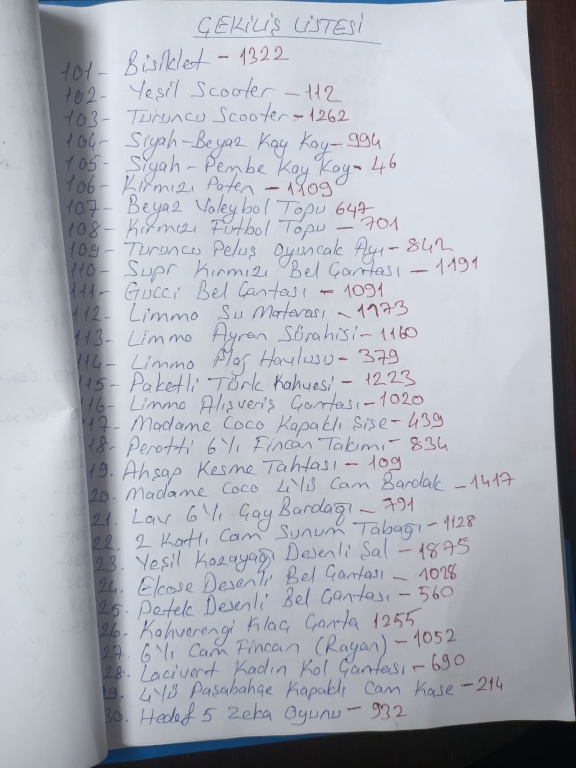 ÇEKİLİŞ LİSTESİ
101- Bisiklet - 1322
102- Yeşil Scooter - 112
103- Turuncu Scooter - 1262
104- Siyah-Beyaz Kay Kay - 994
105- Siyah-Pembe Kay Kay - 46
106- Kırmızı Paten - 1109
107- Beyaz Voleybol Topu 647
108- Kırmızı Futbol Topu - 701
109- Turuncu Peluş Oyuncak Ayı - 842
110- Supr Kırmızı Bel Çantası - 1191
111- Gucci Bel Çantası - 1091
112- Limmo Su Matarası - 1973
113- Limmo Ayran Sürahisi - 1160
114- Limmo Plaj Havlusu - 379
115- Paketli Türk Kahvesi - 1223
116- Limmo Alışveriş Çantası - 1020
117- Madame Coco Kapaklı Şişe - 439
18- Perotti 6'lı Fincan Takımı - 834
19. Ahşap Kesme Tahtası - 109
20. Madame Coco 4'lü Cam Bardak - 1417
21. Lav 6'lı Çay Bardağı - 791
22. 2 Katlı Cam Sunum Tabağı - 1128
23. Yeşil Kazayağı Desenli Şal - 1875
24. Ekose Desenli Bel Çantası - 1028
25. Petek Desenli Bel Çantası - 560
26. Kahverengi Klaç Çanta 1255
27. 6'lı Cam Fincan (Rayan) - 1052
28. Lacivert Kadın Kol Çantası - 690
9. 4'lü Paşabahçe Kapaklı Cam Kase - 214
30. Hedef 5 Zeka Oyunu - 932